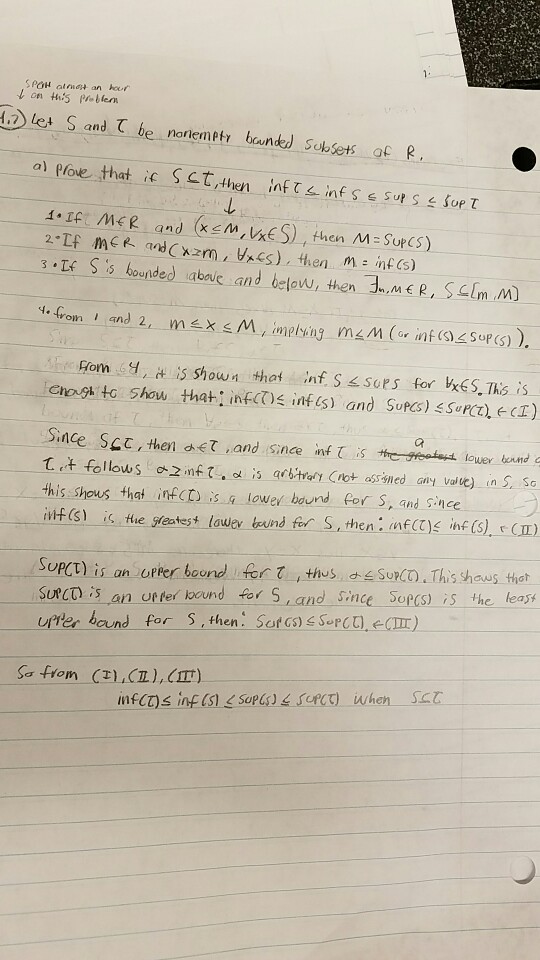 Spent almost an hour
↓ on this problem
4.7) Let S and T be nonempty bounded subsets of R.
a) prove that if S⊆T, then inf T ≤ inf S ≤ sup S ≤ sup T
↓
1• If M∈R and (x≤M, ∀x∈S), then M=sup(S)
2• If m∈R and (x≥m, ∀x∈S), then m = inf(s)
3• If S is bounded above and below, then ∃m,M∈R, S⊆[m,M]
4• from 1 and 2, m≤x≤M, implying m≤M (or inf(s)≤sup(s)).
From 4, it is shown that inf S ≤ sup S for ∀x∈S. This is
enough to show that: inf(T)≤ inf(s) and sup(s) ≤sup(T). ←(I)
Since S⊆T, then α∈T, and since inf T is the greatest a lower bound
T, it follows α≥inf T. α is arbitrary (not assigned any value) in S, so
this shows that inf(T) is a lower bound for S, and since
inf(s) is the greatest lower bound for S, then: inf(T)≤ inf(s). ←(II)
Sup(T) is an upper bound for T, thus α≤sup(T). This shows that
sup(T) is an upper bound for S, and since sup(s) is the least
upper bound for S, then: sup(s)≤sup(T). ←(III)
So from (I), (II), (III)
inf(T)≤ inf(s) ≤sup(s)≤ sup(T) when S⊆T